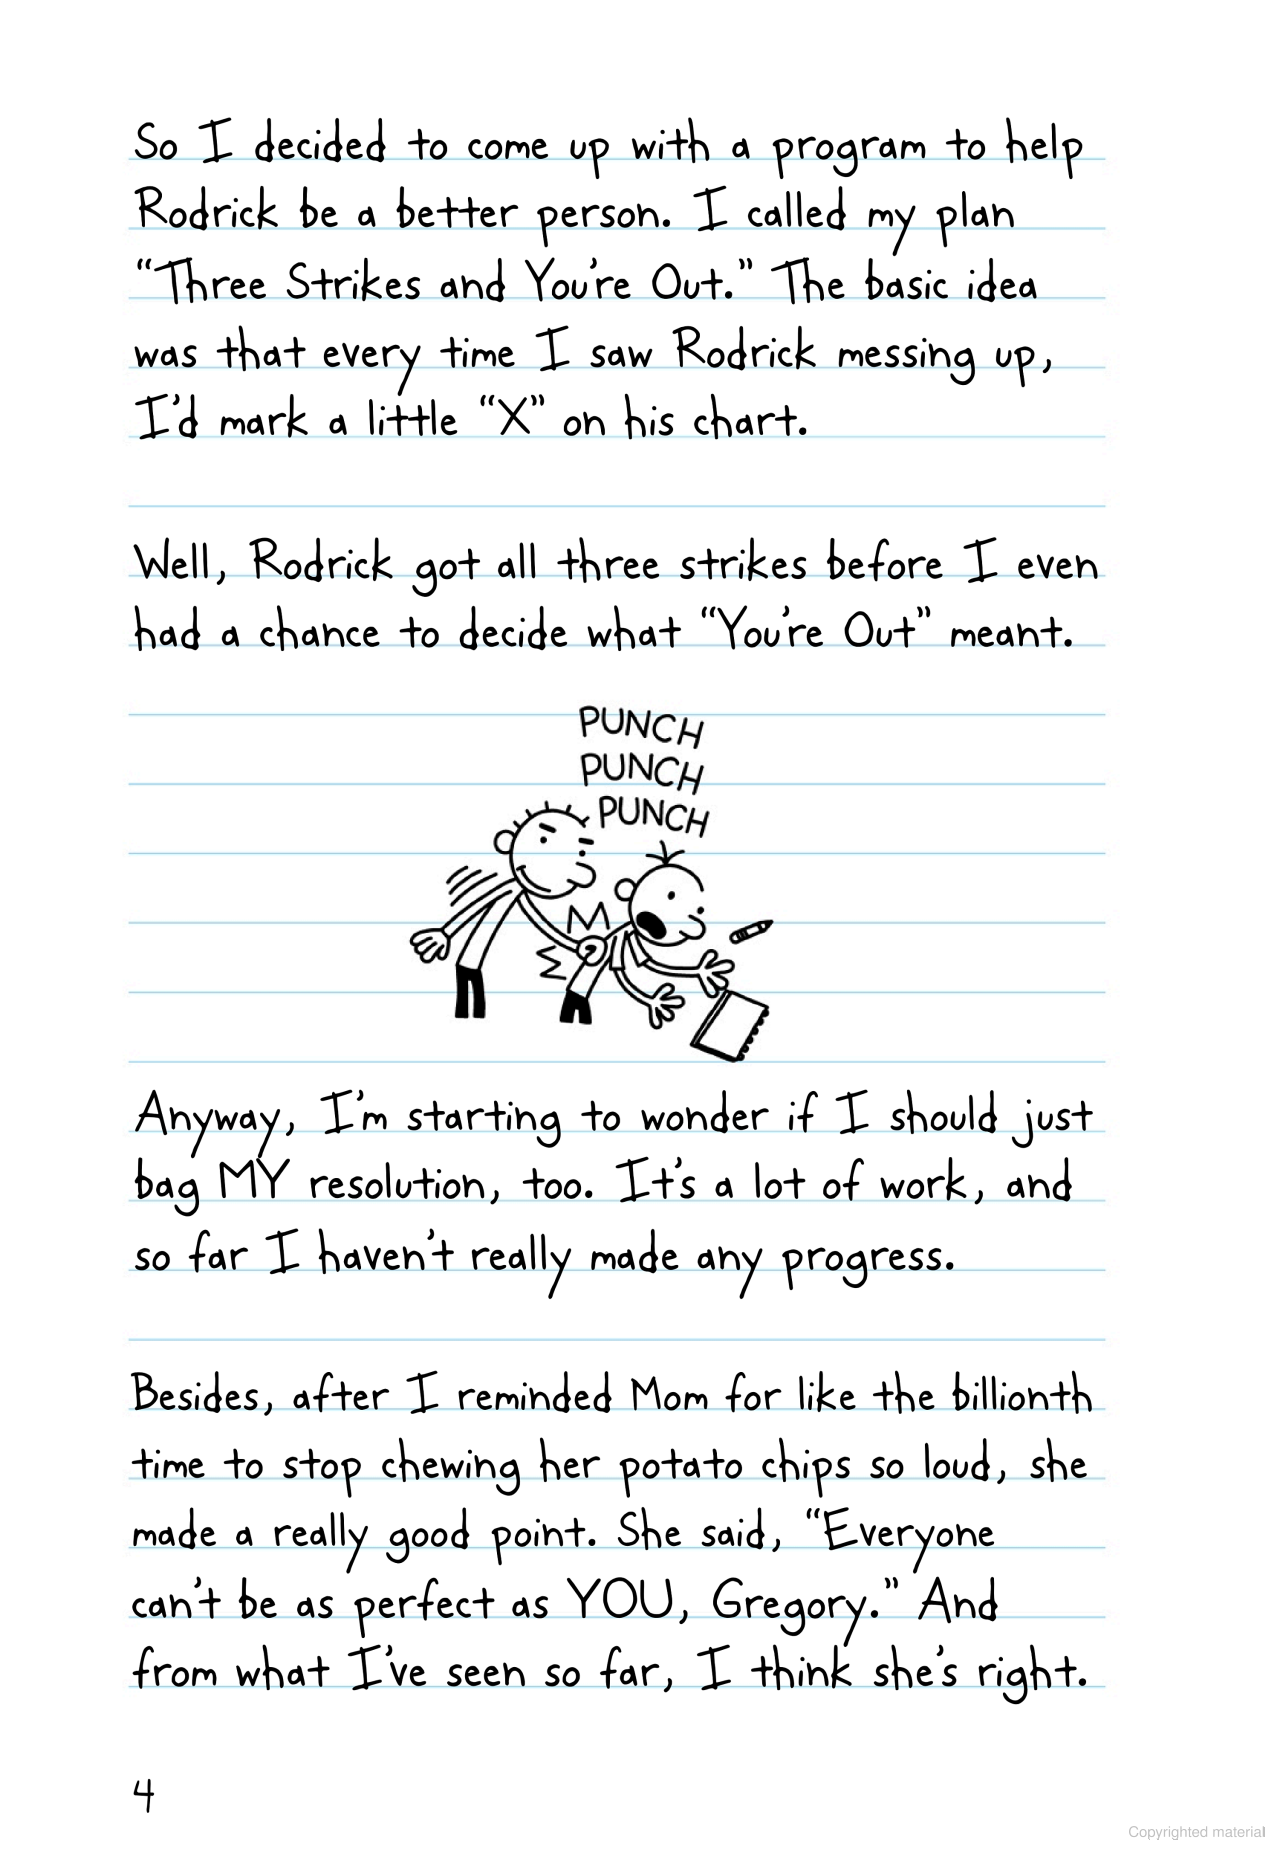 So I decided to come up with a program to help
Rodrick be a better person. I called my plan
“Three Strikes and You’re Out.” The basic idea
was that every time I saw Rodrick messing up,
I’d mark a little “X” on his chart.
Well, Rodrick got all three strikes before I even
had a chance to decide what “You’re Out” meant.
PUNCH
PUNCH
PUNCH
Anyway, I’m starting to wonder if I should just
bag MY resolution, too. It’s a lot of work, and
so far I haven’t really made any progress.
Besides, after I reminded Mom for like the billionth
time to stop chewing her potato chips so loud, she
made a really good point. She said, “Everyone
can’t be as perfect as YOU, Gregory.” And
from what I’ve seen so far, I think she’s right.
4
Copyrighted material